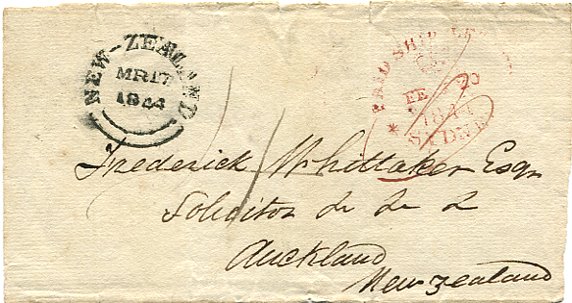 NEW-ZEALAND
MR17
1844
PAID SHIP LETTER
FE 20
1844
SYDNEY
Frederick Whittaker Esqr
Solicitor &c &c &c
Auckland
New Zealand